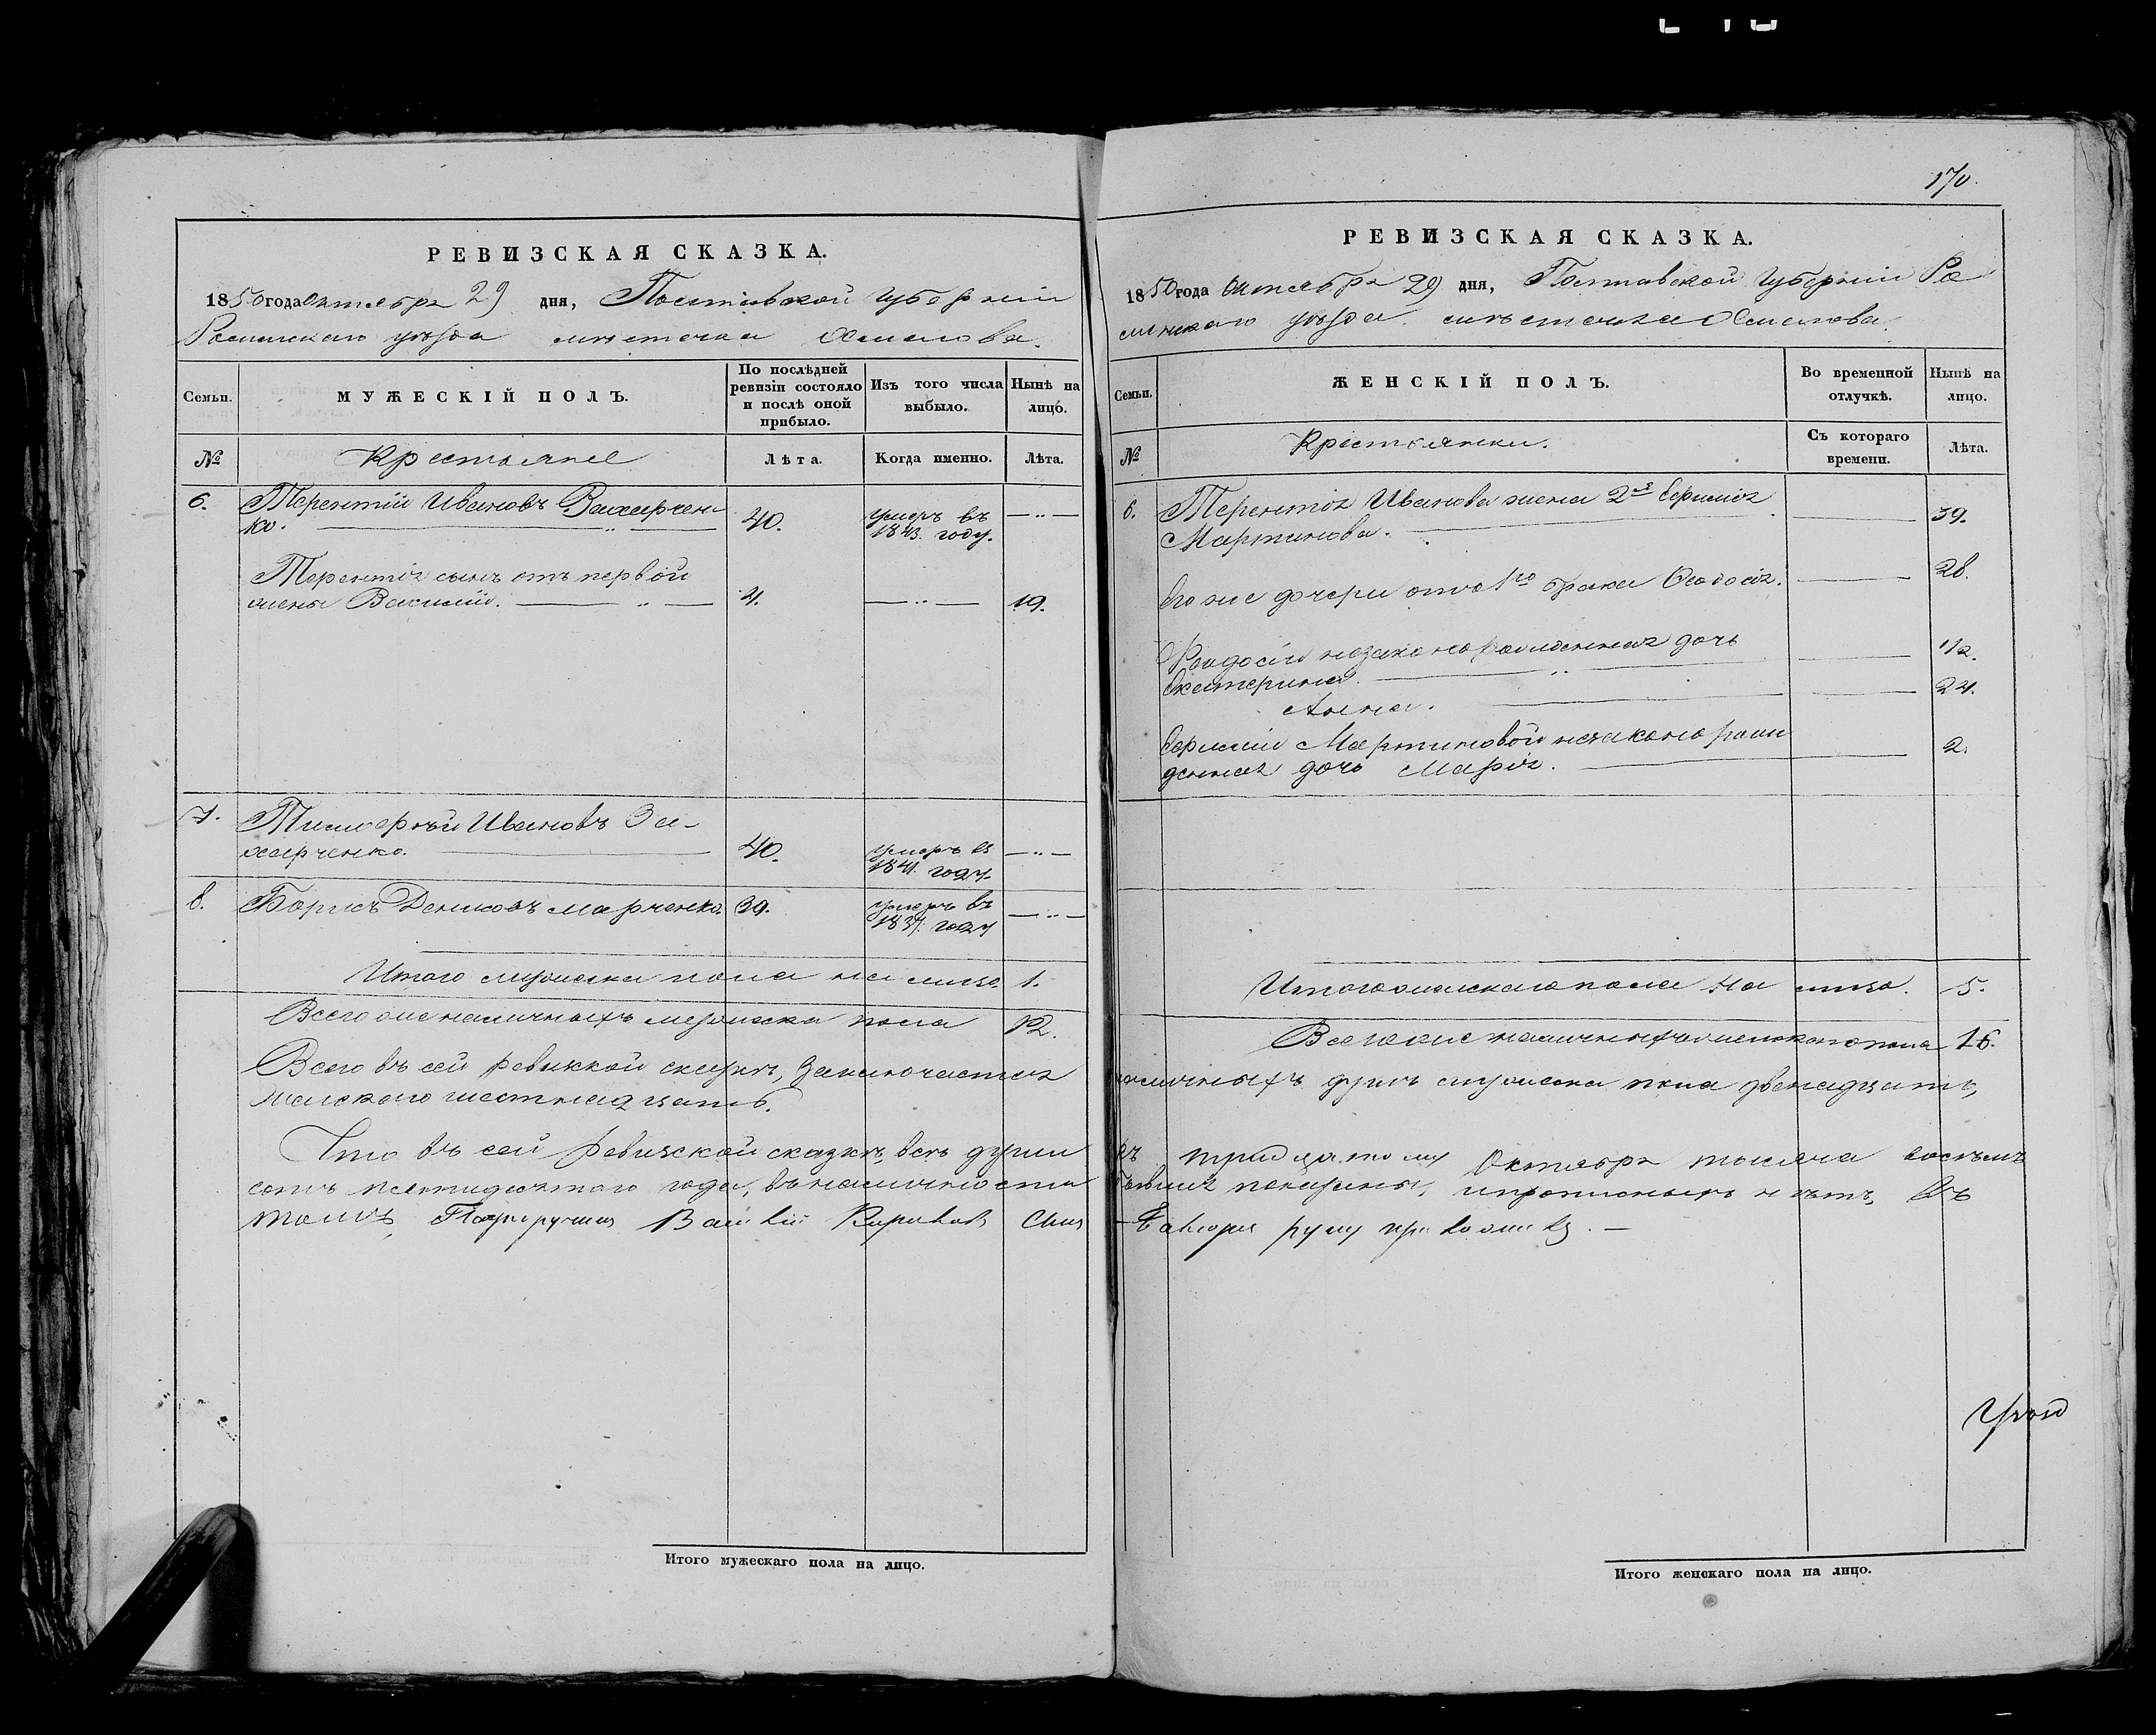 РЕВИЗСКАЯ СКАЗКА.
1850 года Октября 29 дня, Полтавской Губерніи
Роменскаго уѣзда мѣстечка Хмелова.
Семьи.
МУЖЕСКІЙ ПОЛЪ.
По послѣдней ревизіи состояло и послѣ оной прибыло.
Изъ того числа выбыло.
Нынѣ на лицо.
№
Крестьяне
Лѣта.
Когда именно.
Лѣта.
6. Терентій Ивановъ Захарчен
ко. 40. умеръ въ 1843. году.
Терентія сынъ отъ первой
жены Василій. 4. 19.
7. Тимофѣй Ивановъ За-
харченко. 40. умеръ въ 1841. году
8. Борисъ Денисовъ Марченко. 39. умеръ въ 1837. году
Итого мужеска пола на лицо. 1.
Всего же наличныхъ мужеска пола 12.
Всего въ сей ревизкой сказкѣ, заключается
женскаго шестнадцать.
Что въ сей Ревизской сказкѣ, всѣ души
сотъ пятидесятаго года, въ наличности
томъ, Василій
Итого мужескаго пола на лицо.
170.
РЕВИЗСКАЯ СКАЗКА.
1850 года Октября 29 дня, Полтавской Губерніи Ро
менскаго уѣзда мѣстечка Хмелова.
Семьи.
ЖЕНСКІЙ ПОЛЪ.
Во временной отлучкѣ.
Нынѣ на лицо.
№
Крестьянки.
Съ котораго времени.
Лѣта.
6. Терентія Иванова жена 2я Евфимія
Мартинова. 39.
Его же дочери отъ 1го брака Феодосія. 28.
Феодосіи незаконорожденная дочь
Екатерина. 1/2.
Анна. 24.
Евфиміи Мартиновой незаконорож
денная дочь Марія. 2.
Итого женскаго пола на лицо. 5.
Всего же наличныхъ женскаго пола 16.
наличныхъ душъ мужеска пола двенадцать,
къ тридцатому Октября тысяча восемь
бывшія показаны, и прописныхъ нѣтъ, Въ
руку приложилъ. —
Итого женскаго пола на лицо.